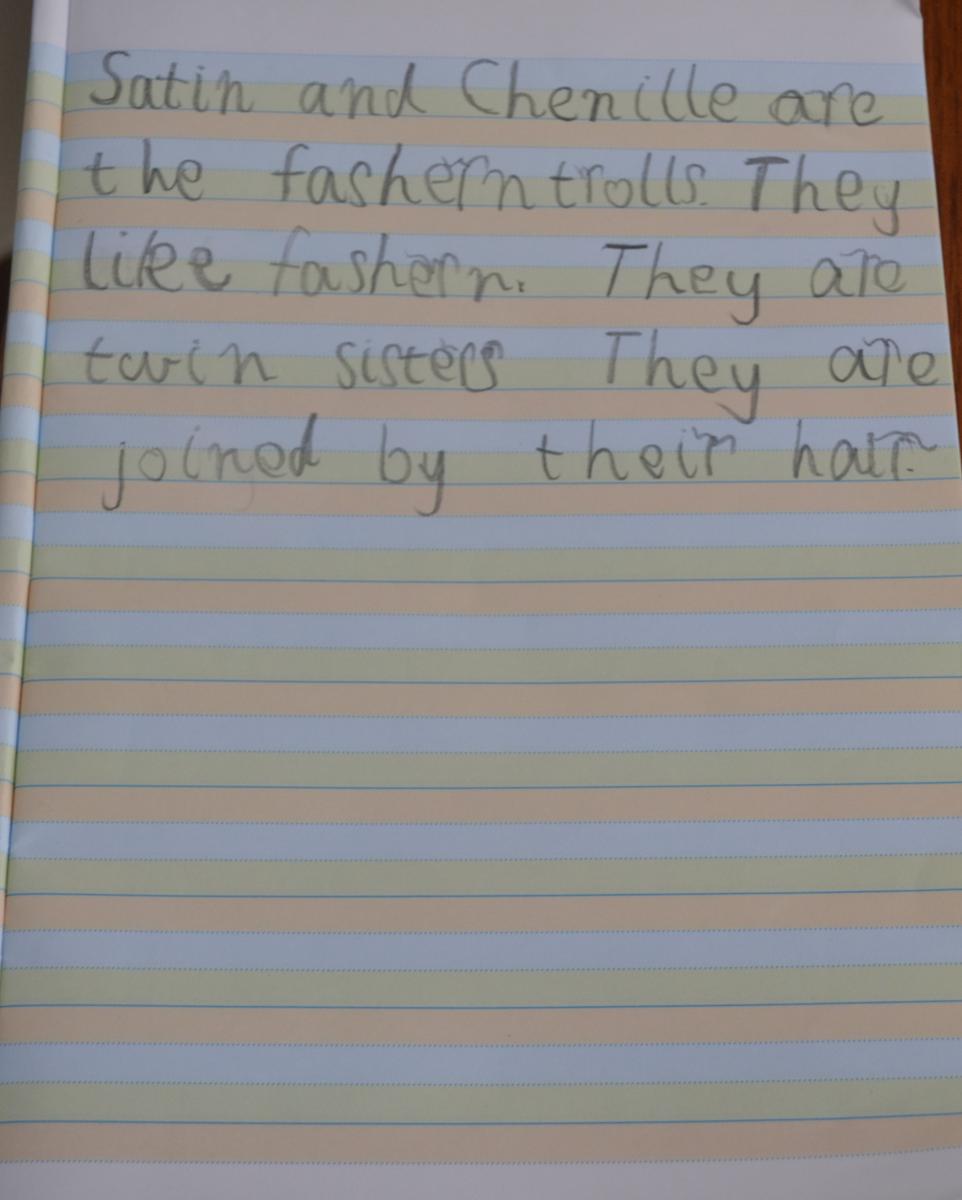 Satin and Chenille are
the fashern trolls. They
like fashern. They are
twin sisters They are
joined by their hair.